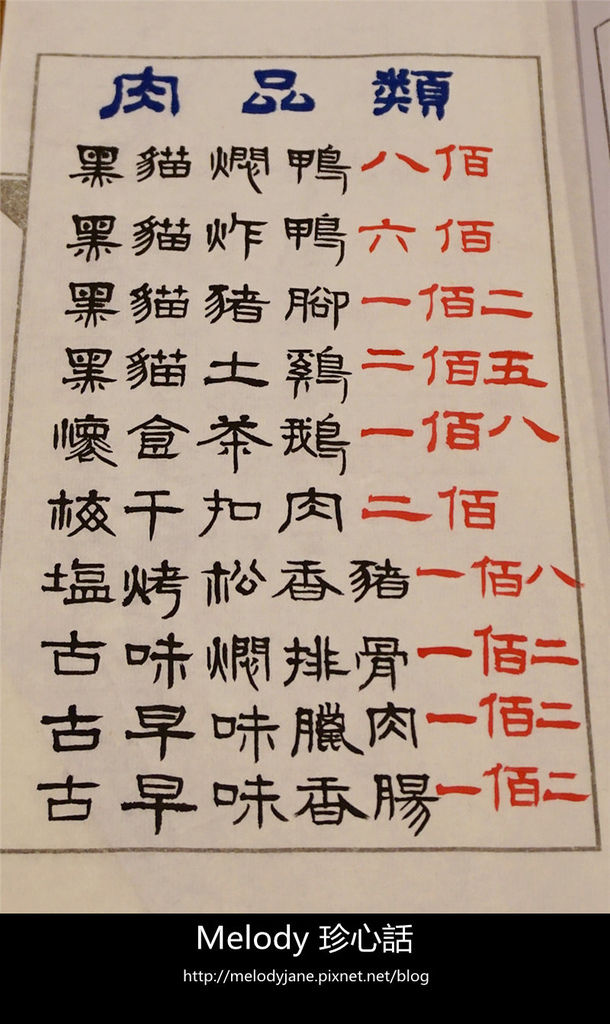 肉品類
黑貓燜鴨 八佰
黑貓炸鴨 六佰
黑貓豬腳 一佰二
黑貓土鷄 二佰五
懷盒茶鵝 一佰八
梅干扣肉 二佰
塩烤松香豬 一佰八
古味燜排骨 一佰二
古早味臘肉 一佰二
古早味香腸 一佰二
Melody 珍心話
http://melodyjane.pixnet.net/blog